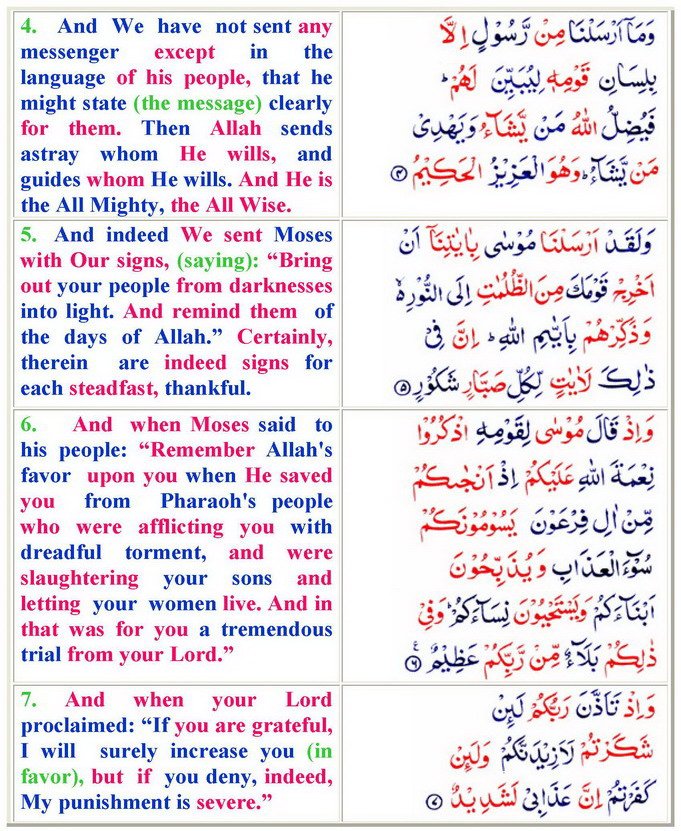 4. And We have not sent any
messenger except in the
language of his people, that he
might state (the message) clearly
for them. Then Allah sends
astray whom He wills, and
guides whom He wills. And He is
the All Mighty, the All Wise.
وَمَاۤ اَرۡسَلۡنَا مِنۡ رَّسُوۡلٍ اِلَّا
بِلِسَانِ قَوۡمِهٖ لِيُبَيِّنَ لَهُمۡ‌ؕ
فَيُضِلُّ اللّٰهُ مَنۡ يَّشَآءُ وَيَهۡدِىۡ
مَنۡ يَّشَآءُ‌ؕ وَهُوَ الۡعَزِيۡزُ الۡحَكِيۡمُ ۴
5. And indeed We sent Moses
with Our signs, (saying): “Bring
out your people from darknesses
into light. And remind them of
the days of Allah.” Certainly,
therein are indeed signs for
each steadfast, thankful.
وَلَقَدۡ اَرۡسَلۡنَا مُوۡسٰى بِاٰيٰتِنَاۤ اَنۡ
اَخۡرِجۡ قَوۡمَكَ مِنَ الظُّلُمٰتِ اِلَى النُّوۡرِ ۙ
وَذَكِّرۡهُمۡ بِاَيّٰٮمِ اللّٰهِ‌ؕ اِنَّ فِىۡ
ذٰلِكَ لَاٰيٰتٍ لِّـكُلِّ صَبَّارٍ شَكُوۡرٍ ۵
6. And when Moses said to
his people: “Remember Allah's
favor upon you when He saved
you from Pharaoh's people
who were afflicting you with
dreadful torment, and were
slaughtering your sons and
letting your women live. And in
that was for you a tremendous
trial from your Lord.”
وَاِذۡ قَالَ مُوۡسٰى لِقَوۡمِهِ اذۡكُرُوۡا
نِعۡمَةَ اللّٰهِ عَلَيۡكُمۡ اِذۡ اَنۡجٰٮكُمۡ
مِّنۡ اٰلِ فِرۡعَوۡنَ يَسُوۡمُوۡنَكُمۡ
سُوۡٓءَ الۡعَذَابِ وَ يُذَبِّحُوۡنَ
اَبۡنَآءَكُمۡ وَيَسۡتَحۡيُوۡنَ نِسَآءَكُمۡ‌ؕ وَفِىۡ
ذٰلِكُمۡ بَلَاۤءٌ مِّنۡ رَّبِّكُمۡ عَظِيۡمٌ ۶
7. And when your Lord
proclaimed: “If you are grateful,
I will surely increase you (in
favor), but if you deny, indeed,
My punishment is severe.”
وَاِذۡ تَاَذَّنَ رَبُّكُمۡ لَئِنۡ
شَكَرۡتُمۡ لَاَزِيۡدَنَّـكُمۡ‌ وَلَئِنۡ
كَفَرۡتُمۡ اِنَّ عَذَابِىۡ لَشَدِيۡدٌ ۷